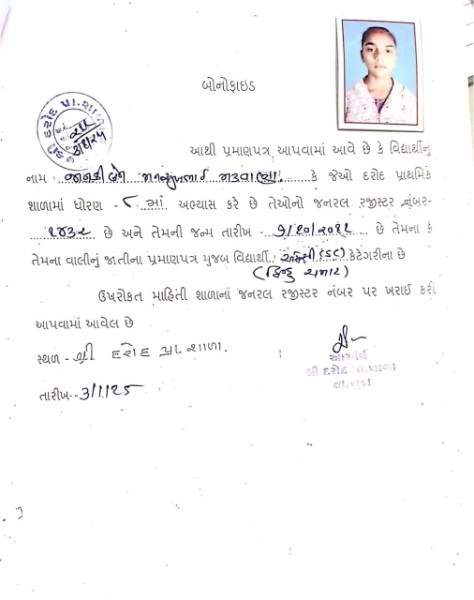 બોનોફાઇડ
આથી પ્રમાણપત્ર આપવામાં આવે છે કે વિદ્યાર્થીનું
નામ જાનકીબેન મનસુખભાઈ કે જેઓ દરોદ પ્રાથમિક
શાળામાં ધોરણ - ૮ માં અભ્યાસ કરે છે તેઓનો જનરલ રજીસ્ટર નંબર-
૨૪૩૨ છે અને તેમની જન્મ તારીખ - છે તેમના કે
તેમના વાલીનું જાતીના પ્રમાણપત્ર મુજબ વિદ્યાર્થી. (SC) કેટેગરીના છે
(હિન્દુ ચમાર)
ઉપરોકત માહિતી શાળાનાં જનરલ રજીસ્ટર નંબર પર ખરાઈ કરી
આપવામાં આવેલ છે
સ્થળ - શ્રી દરોદ પ્રા શાળા.
આચાર્ય
શ્રી દરોદ પ્રા. શાળા
તારીખ-- 3/1/25